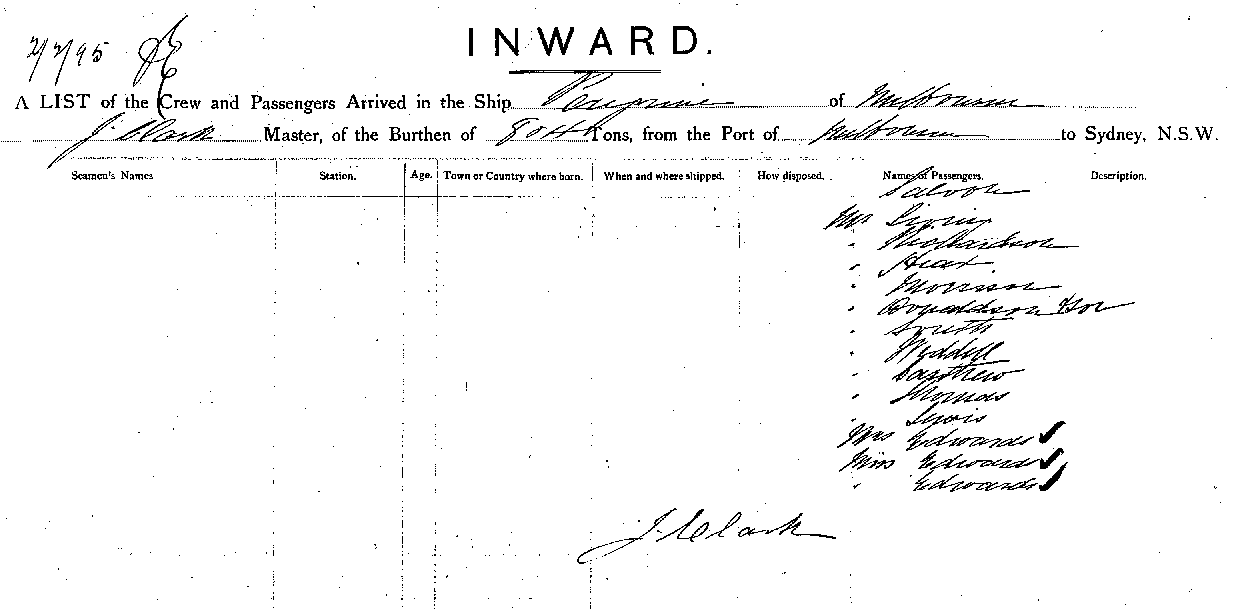 2/7/95
INWARD.
A LIST of the Crew and Passengers Arrived in the Ship Peregrine of Melbourne
J. Clark Master, of the Burthen of Tons, from the Port of Melbourne to Sydney, N.S.W.
Seamen's Names Station. Age. Town or Country where born. When and where shipped. How disposed. Names of Passengers. Description.
Saloon
Mr
" Richardson
" Hunt
" Morrison
" Donaldson
" South
" Weddell
"
" Thomas
" Lewis
Mrs Edwards
Miss Edwards
" Edwards
J. Clark